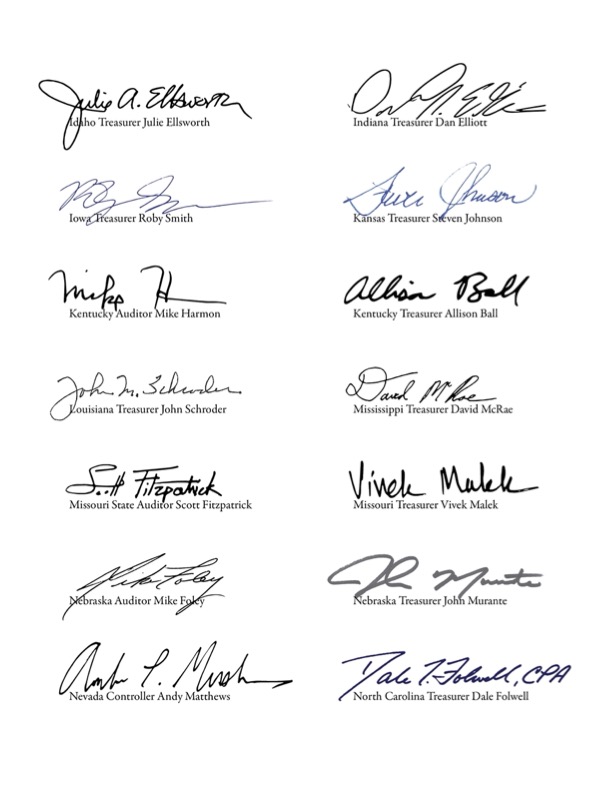 Julie A. Ellsworth
Idaho Treasurer Julie Ellsworth
Indiana Treasurer Dan Elliott
Iowa Treasurer Roby Smith
Steven Johnson
Kansas Treasurer Steven Johnson
Mike H
Kentucky Auditor Mike Harmon
Allison Ball
Kentucky Treasurer Allison Ball
John M. Schroder
Louisiana Treasurer John Schroder
David McRae
Mississippi Treasurer David McRae
Scott Fitzpatrick
Missouri State Auditor Scott Fitzpatrick
Vivek Malek
Missouri Treasurer Vivek Malek
Mike Foley
Nebraska Auditor Mike Foley
Murante
Nebraska Treasurer John Murante
Nevada Controller Andy Matthews
Dale T. Folwell, CPA
North Carolina Treasurer Dale Folwell